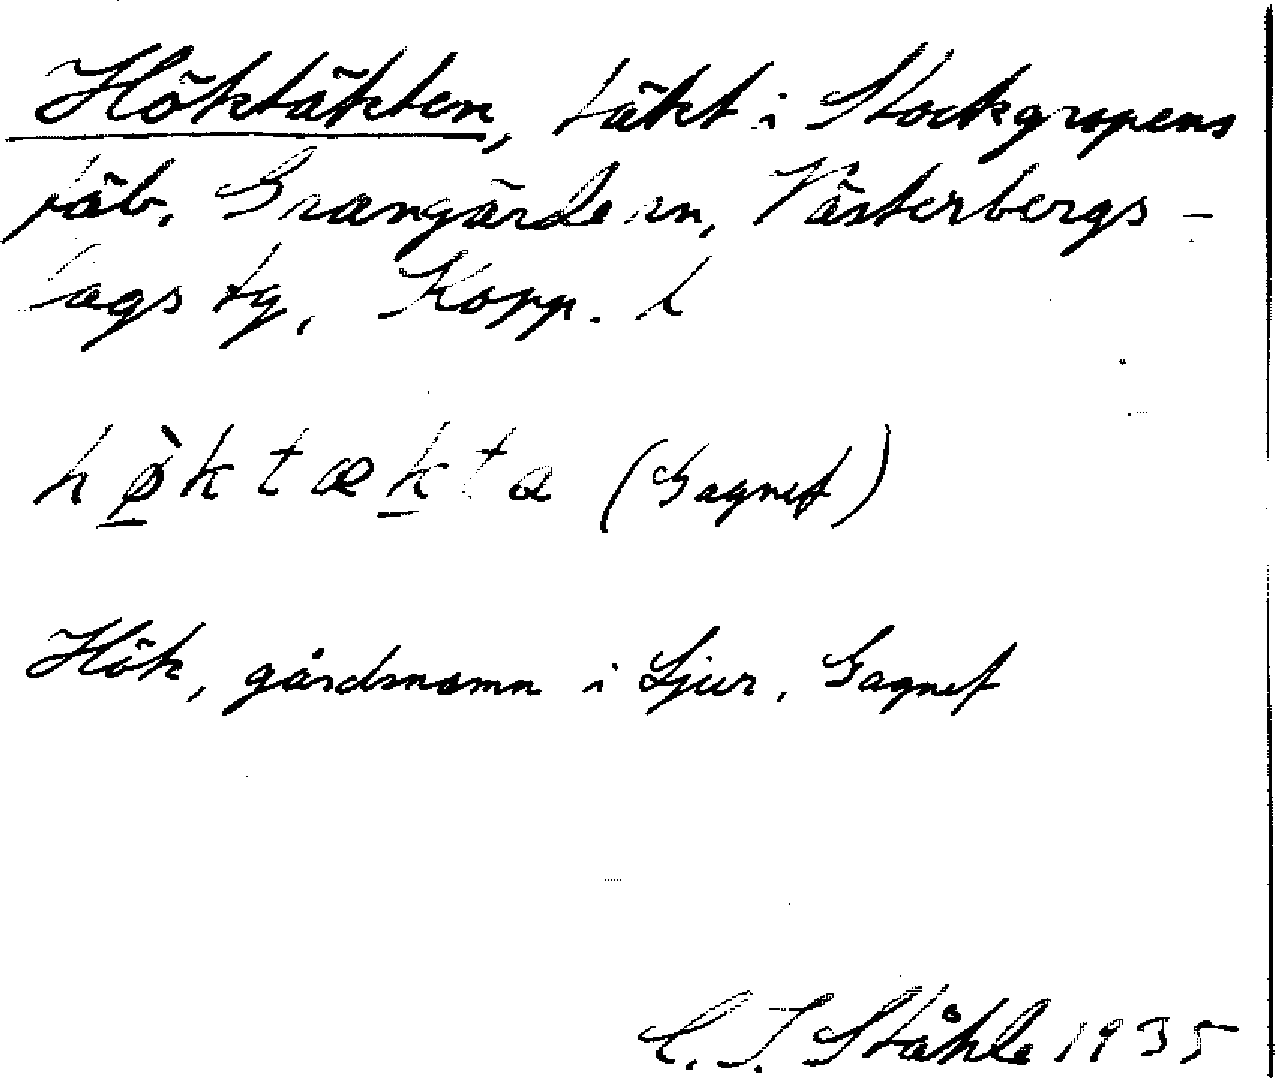 Höktäkten, täkt i Stockgropens
fäb. Grangärde sn, Västerbergs-
lags tg, Kopp. l
hø̀ktækta (Gagnef)
Hök, gårdsnamn i Ljur, Gagnef
C. I. Ståhle 1935